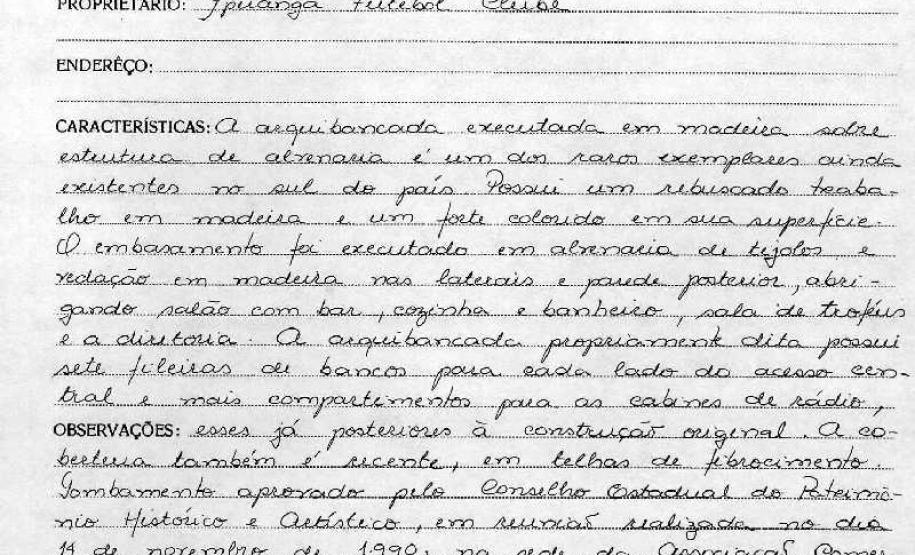 PROPRIETÁRIO: Ipiranga Futebol Clube
ENDERÊÇO:
CARACTERÍSTICAS: A arquibancada executada em madeira sobre
estrutura de alvenaria é um dos raros exemplares ainda
existentes no sul do país. Possui um rebuscado traba-
lho em madeira e um forte colorido em sua superfície.
O embasamento foi executado em alvenaria de tijolos, e
vedação em madeira nas laterais e parede posterior, abri-
gando salão com bar, cozinha e banheiro, sala de troféus
e a diretoria. A arquibancada propriamente dita possui
sete fileiras de bancos para cada lado do acesso cen-
tral e mais compartimentos para as cabines de rádio,
OBSERVAÇÕES: esses já posteriores à construção original. A co-
bertura também é recente, em telhas de fibrocimento.
Tombamento aprovado pelo Conselho Estadual do Patrimô-
nio Histórico e Artístico, em reunião realizada no dia
14 de novembro de 1990, na sede da Associação Comer